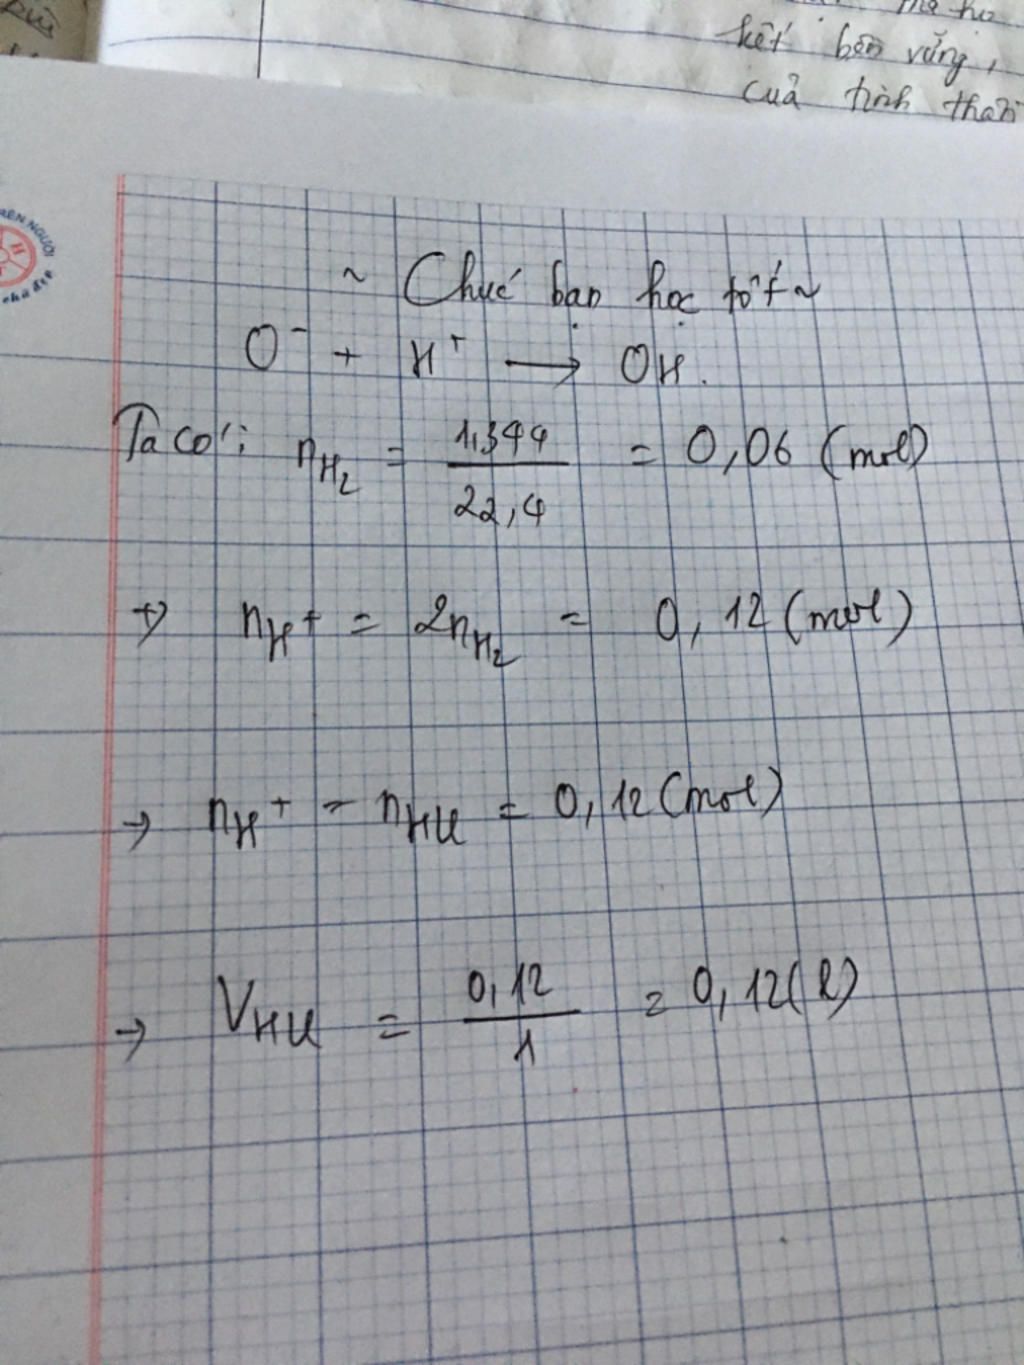 kết bền vững,
của tinh thần
~ Chúc bạn học tốt ~
O⁻ + H⁺ → OH.
Ta có: nH₂ = 1,344 / 22,4 = 0,06 (mol)
=> nH⁺ = 2nH₂ = 0,12 (mol)
→ nH⁺ = nHCl = 0,12 (mol)
→ VHCl = 0,12 / 1 = 0,12 (l)